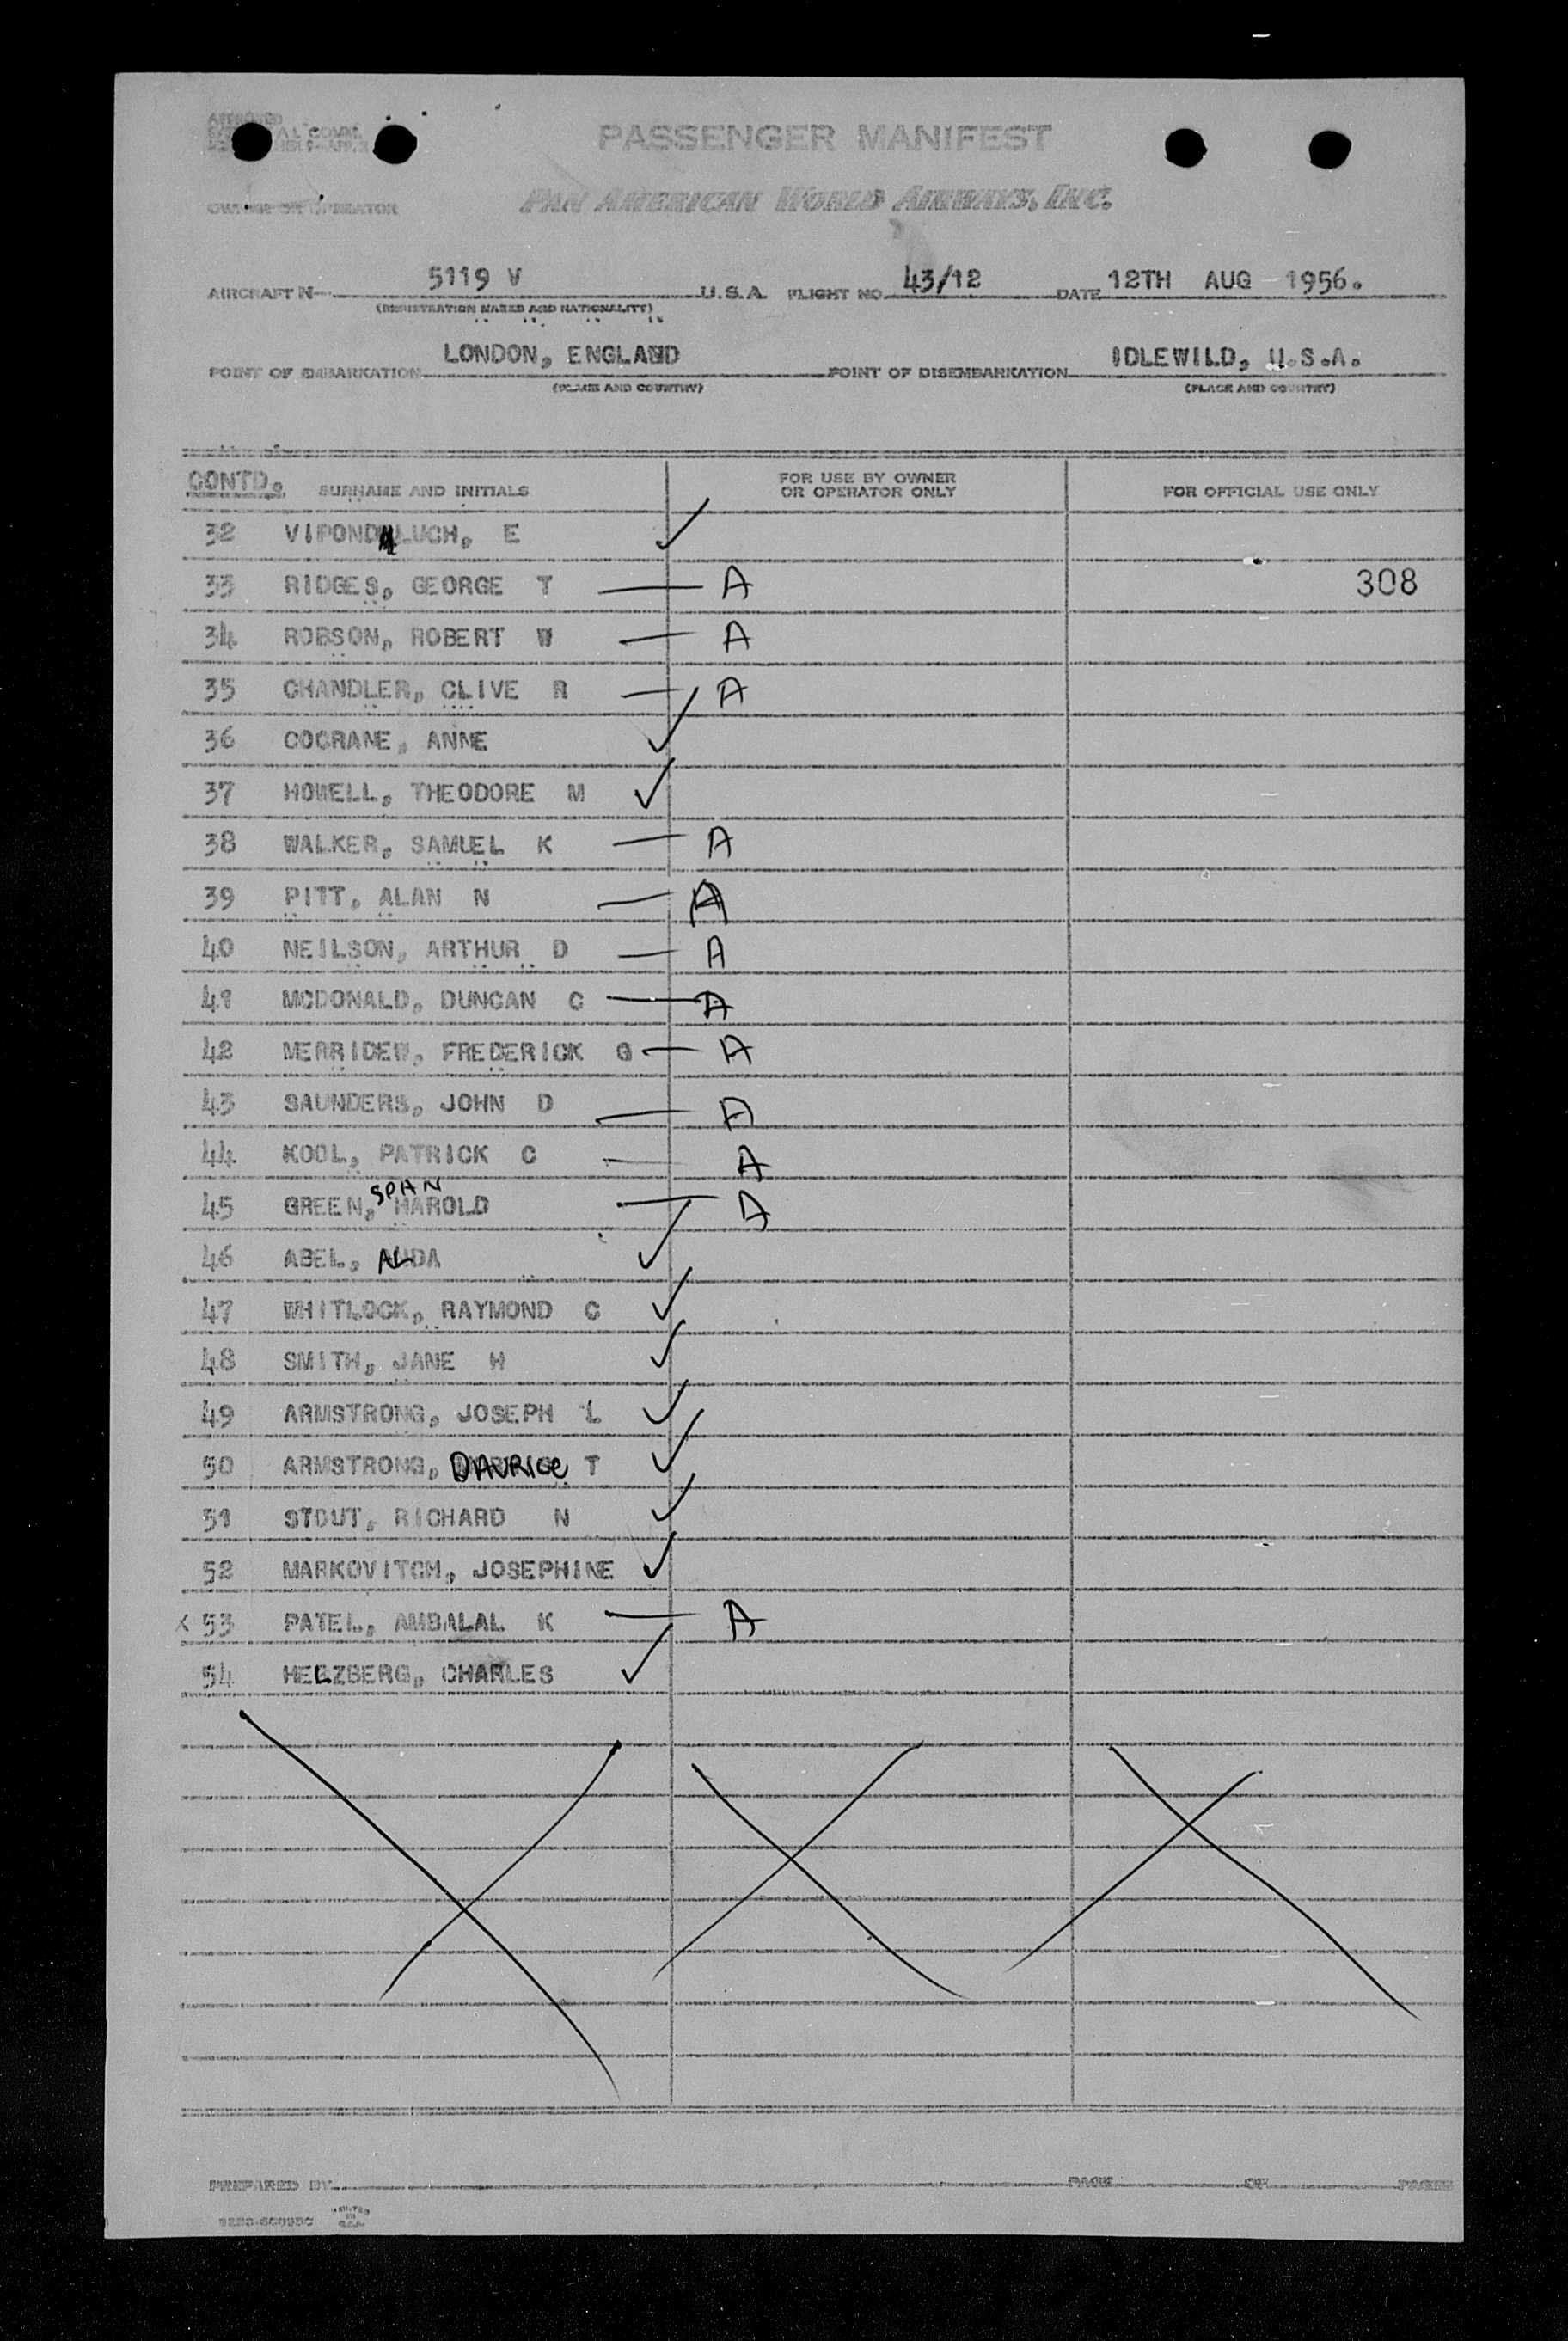 PASSENGER MANIFEST
PAN AMERICAN WORLD AIRWAYS, INC.
AIRCRAFT N 5119 V U.S.A. FLIGHT NO. 43/12 DATE 12TH AUG 1956.
(REGISTRATION MARKS AND NATIONALITY)
POINT OF EMBARKATION LONDON, ENGLAND POINT OF DISEMBARKATION IDLEWILD, U.S.A.
(PLACE AND COUNTRY) (PLACE AND COUNTRY)
CONTD. SURNAME AND INITIALS FOR USE BY OWNER OR OPERATOR ONLY FOR OFFICIAL USE ONLY
32 VIPOND LUCH, E ✓
33 RIDGES, GEORGE T — A 308
34 ROBSON, ROBERT W — A
35 CHANDLER, CLIVE R — A
36 COCRANE, ANNE ✓
37 HOWELL, THEODORE M ✓
38 WALKER, SAMUEL K — A
39 PITT, ALAN N — A
40 NEILSON, ARTHUR D — A
41 MCDONALD, DUNCAN C — A
42 MERRIDEW, FREDERICK G — A
43 SAUNDERS, JOHN D — A
44 KOOL, PATRICK C — A
45 GREEN, SPAN HAROLD — A
46 ABEL, ALIDA ✓
47 WHITLOCK, RAYMOND C ✓
48 SMITH, JANE H ✓
49 ARMSTRONG, JOSEPH L ✓
50 ARMSTRONG, DAURICE T ✓
51 STOUT, RICHARD N ✓
52 MARKOVITCH, JOSEPHINE ✓
X 53 PATEL, AMBALAL K — A
54 HELZBERG, CHARLES ✓
PREPARED BY PAGE OF PAGES